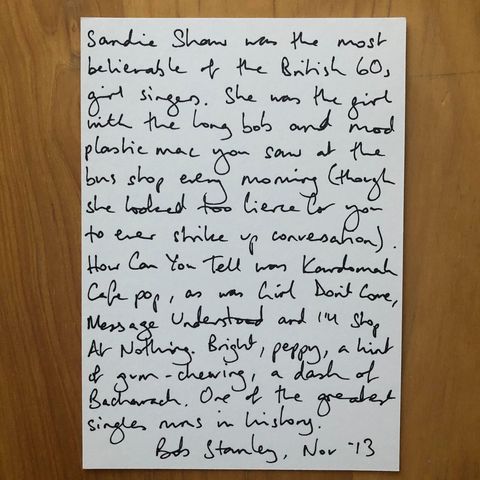 Sandie Shaw was the most
believable of the British 60s
girl singers. She was the girl
with the long bob and mod
plastic mac you saw at the
bus stop every morning (though
she looked too fierce for you
to ever strike up conversation).
How Can You Tell was Kardomah
Cafe pop, as was Girl Don't Come,
Message Understood and I'll Stop
At Nothing. Bright, peppy, a hint
of gum-chewing, a dash of
Bacharach. One of the greatest
singles runs in history.
Bob Stanley, Nov '13